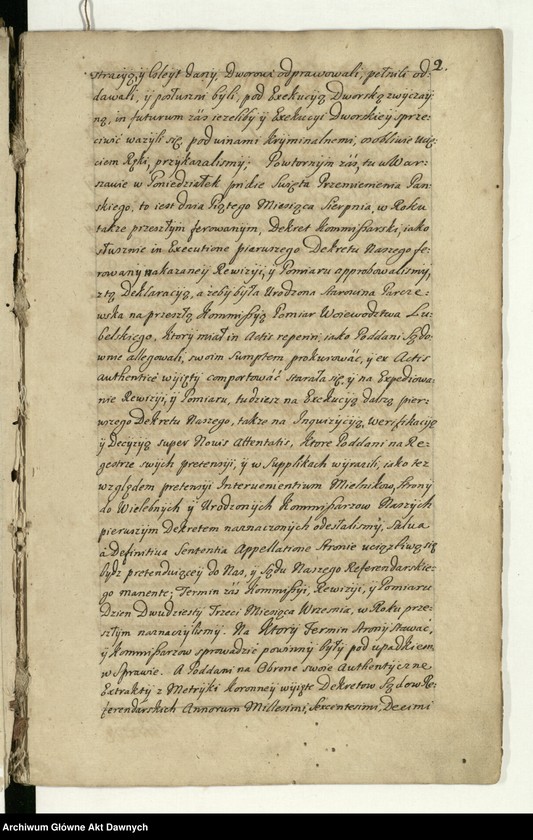 2.
stracyą, y Gleyt dany, Dworowi odprawowali, pełnili od-
dawali, y posłuszni byli, pod Exekucyą Dworską zwyczay-
ną, in futurum zás ieżeliby y Exekucyi Dworskiey sprze-
ciwić ważyli się, pod winami kryminalnemi, osobliwie ucię-
ciem Ręki, przykazalismy; Powtornym zás, tu w War-
szawie w Poniedziałek pridie Swięta Przemienienia Pań-
skiego, to iest dnia Piątego Miesiąca Sierpnia, w Roku
także przeszłym ferowanym, Dekret Kommissarski, iako
słusznie in Executione pierwszego Dekretu Naszego fe-
rowany nakazaney Rewizyi, y Pomiaru approbowalismy,
z tą Deklaracyą, ażeby była Urodzona Starościna Parcze-
wska na przeszłą Kommissyą Pomiar Woiewodztwa Lu-
belskiego, ktory miał in Actis reperiri, iako Poddani Sądo-
wnie allegowali, swoim Sumptem prokurować, y ex Actis
authentice wyięty comportować starała się, y na Expediowa-
nie Rewizyi, y Pomiaru, tudziesz na Exekucyą dalszą pier-
wszego Dekretu Naszego, także na Inquizycyą, Weryfikacyą
y Decyzyą super Novis Attentatis, ktore Poddani na Re-
gestrze swych pretensyi, y w Supplikach wyrazili, iako też
względem pretensyi Intervenientium Mielnikow, Strony
do Wielebnych y Urodzonych Kommissarzow Naszych
pierwszym Dekretem naznaczonych odesłalismy, Salva
a Definitiva Sententia Appellatione Stronie uciążliwą się
bydź pretenduiącey do Nas, y Sądu Naszego Referendarskie-
go manente; Termin zás Kommissyi, Rewizyi, y Pomiaru
Dzień Dwudziesty Trzeci Miesiąca Wrzesnia, w Roku prze-
szłym naznaczylismy. Na Ktory Termin Strony stawać,
y Kommissarzow sprowadzić powinny były pod upadkiem
w Sprawie. A Poddani na Obronę swoię Authentyczne
Extrakty z Metryki Koronney wyięte Dekretow Sądow Re-
ferendarskich Annorum Millesimi, Sexcentesimi, Decimi
Archiwum Główne Akt Dawnych